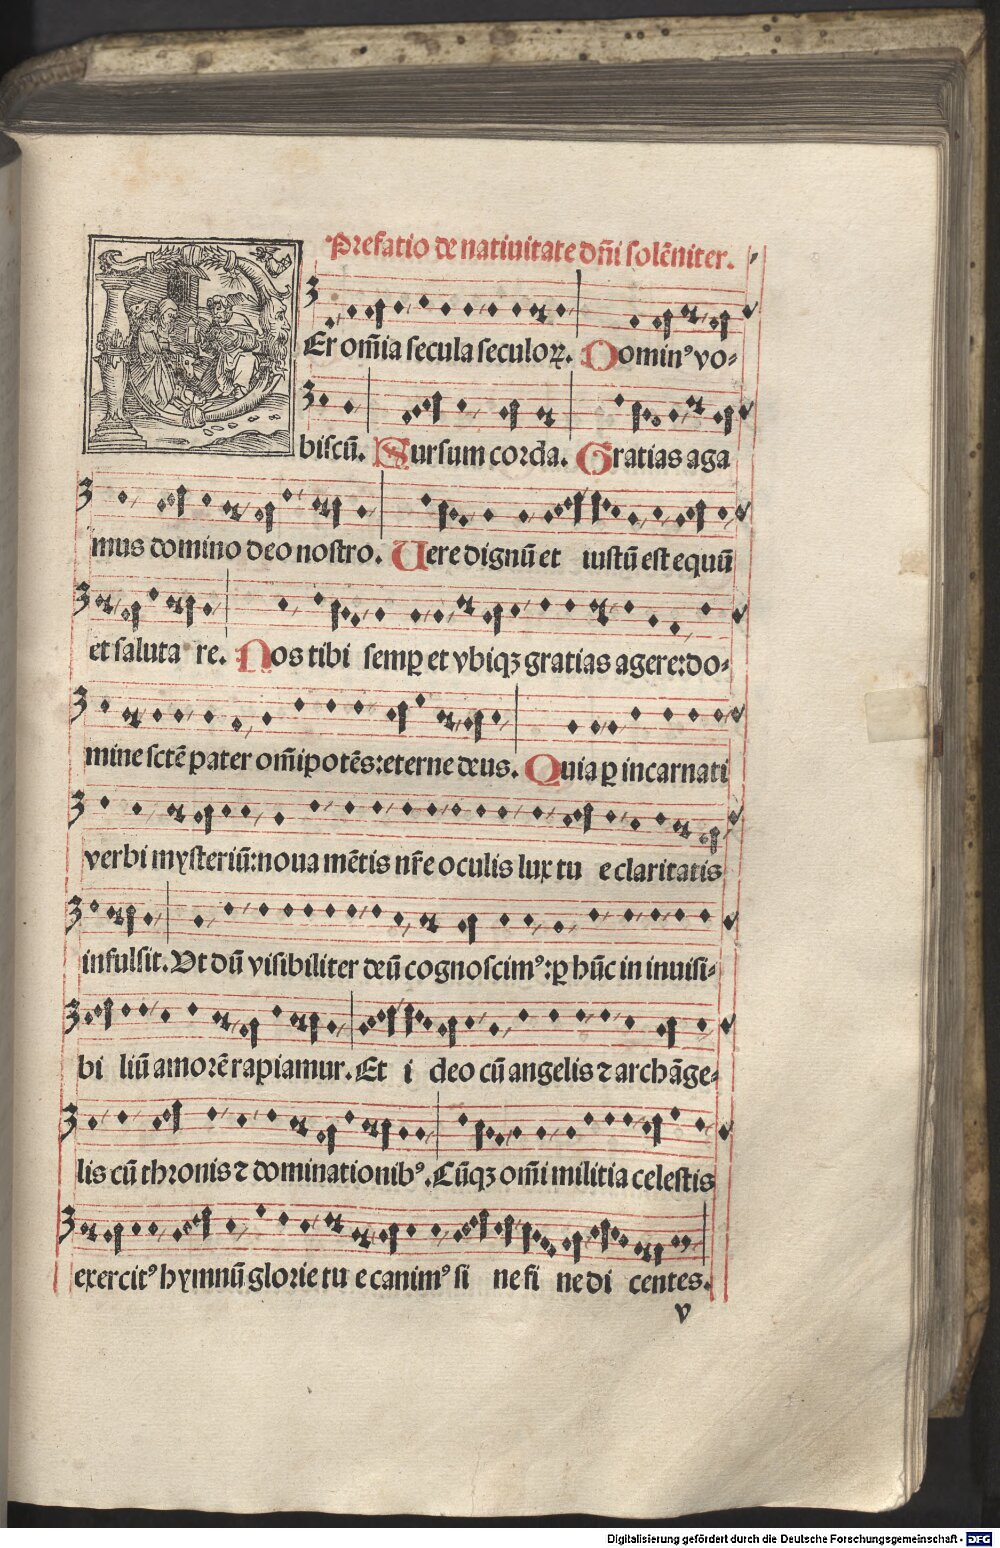 Prefatio de natiuitate dn̄i solēniter.
Er om̄ia secula seculoꝝ. Dominꝰ vo⸗
biscū. Sursum corda. Gratias aga
mus domino deo nostro. Uere dignū et iustū est equū
et saluta re. Nos tibi semꝑ et vbiqꝫ gratias agere: do⸗
mine sctē pater om̄ipotēs: eterne deus. Quia ꝑ incarnati
verbi mysteriū: noua mētis nr̄e oculis lux tu e claritatis
infulsit. Vt dū visibiliter deū cognoscimꝰ: ꝑ hūc in inuisi⸗
bi liū amorē rapiamur. Et i deo cū angelis ⁊ archāge⸗
lis cū thronis ⁊ dominationibꝰ. Cūqꝫ om̄i militia celestis
exercitꝰ hymnū glorie tu e canimꝰ si ne fi ne di centes.
v
Digitalisierung gefördert durch die Deutsche Forschungsgemeinschaft - DFG